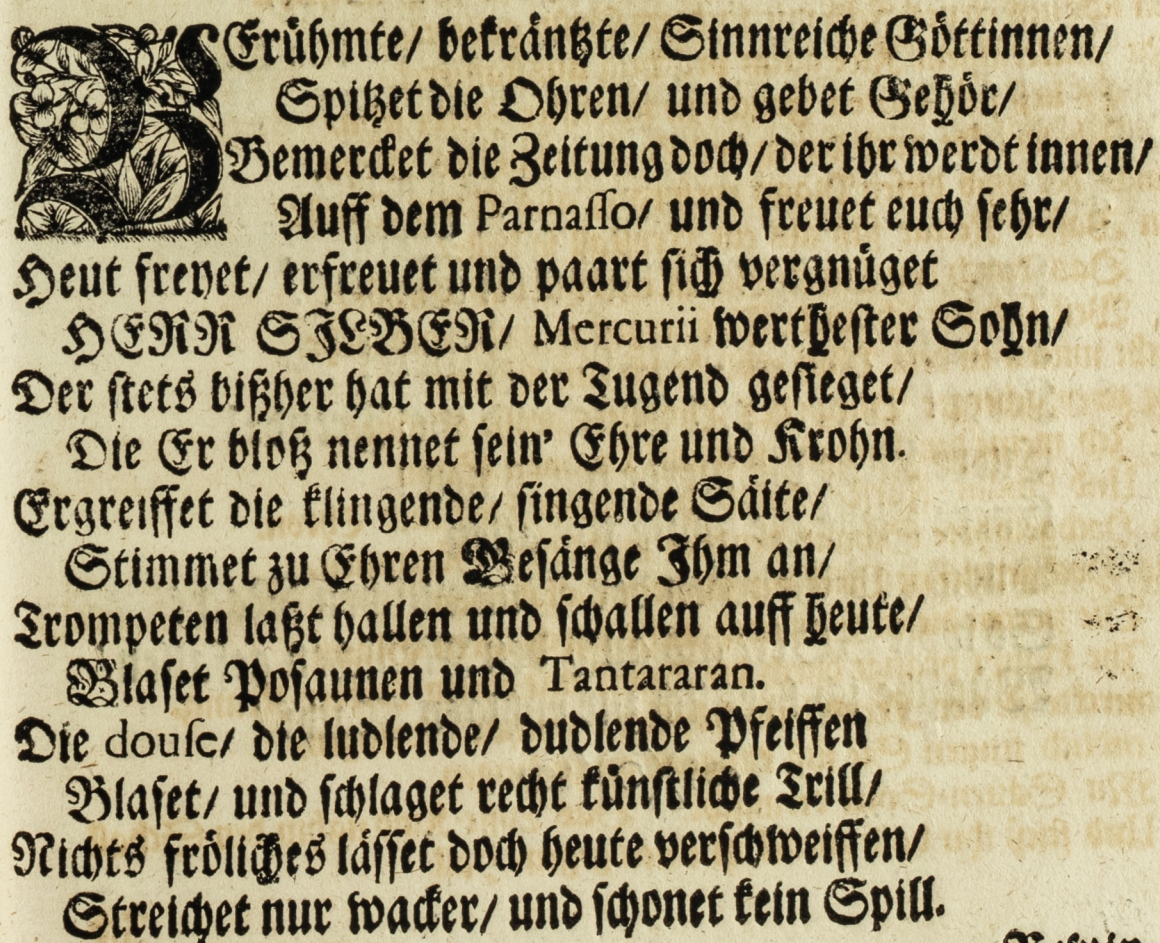 BErühmte/ bekräntzte/ Sinnreiche Göttinnen/
Spitzet die Ohren/ und gebet Gehör/
Bemercket die Zeitung doch/ der ihr werdt innen/
Auff dem Parnaſſo/ und freuet euch ſehr/
Heut freyet/ erfreuet und paart ſich vergnüget
HERR SILBER/ Mercurii wertheſter Sohn/
Der ſtets bißher hat mit der Tugend geſieget/
Die Er bloß nennet ſein' Ehre und Krohn.
Ergreiffet die klingende/ ſingende Säite/
Stimmet zu Ehren Geſänge Ihm an/
Trompeten laßt hallen und ſchallen auff heute/
Blaſet Poſaunen und Tantararan.
Die douſe/ die ludlende/ dudlende Pfeiffen
Blaſet/ und ſchlaget recht künſtliche Trill/
Nichts fröliches läſſet doch heute verſchweiffen/
Streichet nur wacker/ und ſchonet kein Spill.